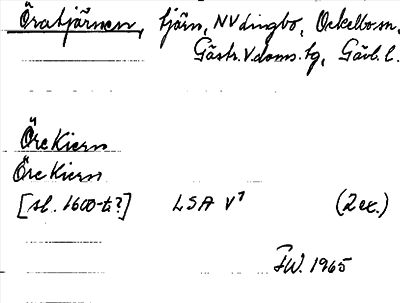 Öratjärnen, tjärn, NVdingbo, Ockelbo sn,
Gästr. V. doms. tg, Gävl. l.
Öre Kiern
Öre Kiern
[sl. 1600-t.?] LSA V⁷ (2 ex.)
FW. 1965